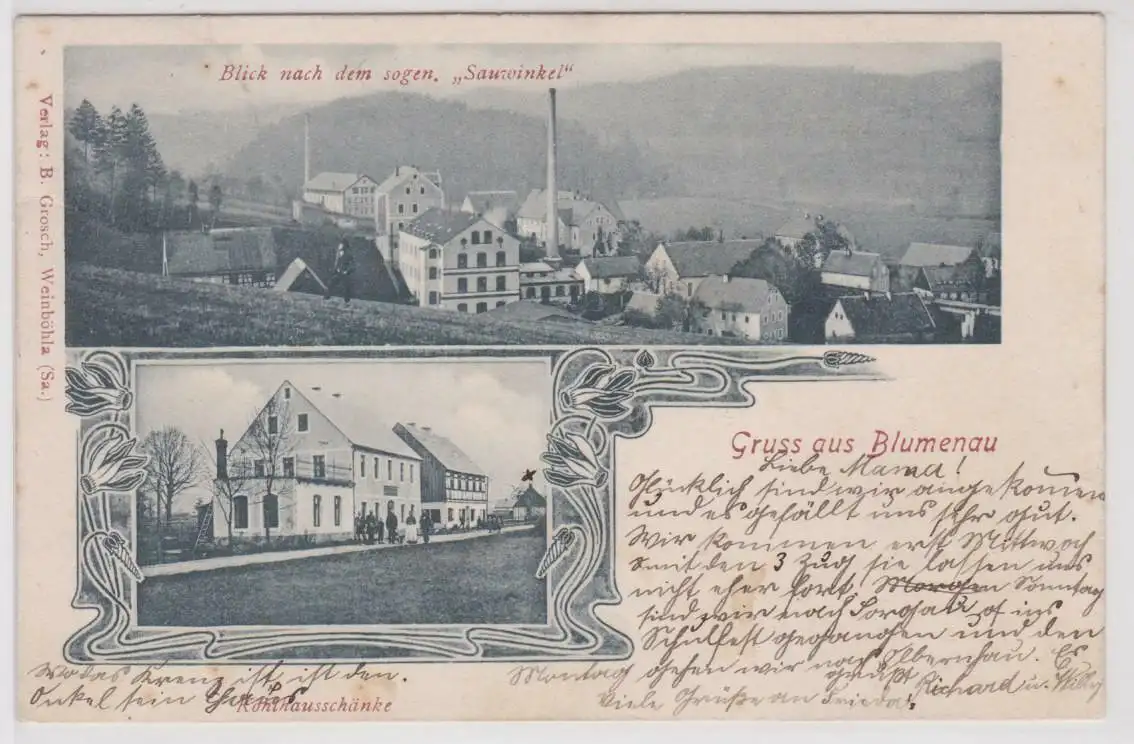 Blick nach dem sogen. „Sauwinkel"
Verlag: B. Grosch, Weinböhla (Sa.)
Gruss aus Blumenau
Liebe Mama!
Glücklich sind wir angekomen
und es gefällt uns sehr gut.
Wir kommen erst Mittwoch
mit den 3 Zug sie lassen uns
nicht eher fort. Morgen Sonntag
sind wir nach Sorgau ins
Schulfest gegangen und den
Montag gehen wir nach Olbernhau. Es
grüßt Richard u. Willy
Viele Grüße an Frieda.
Wo das Kreuz ist ist den.
Onkel sein
Kohlhausschänke